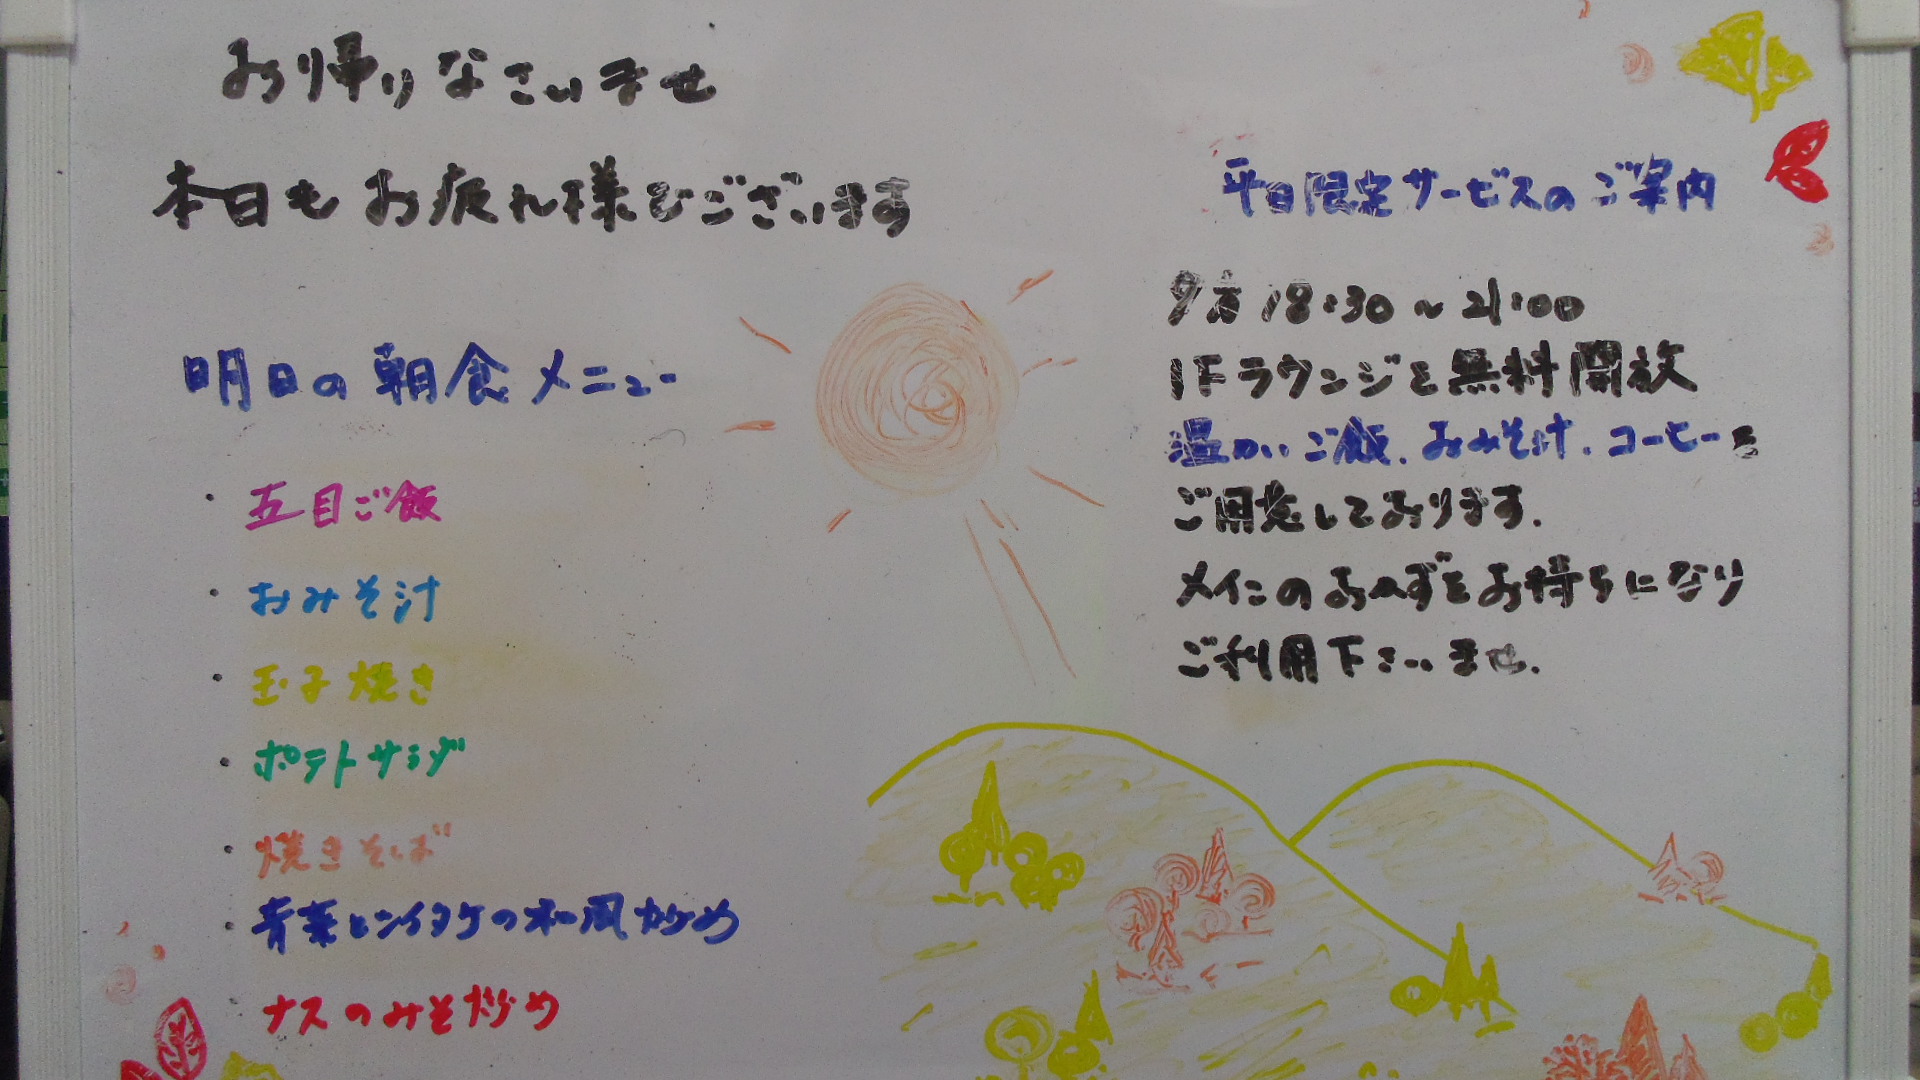 お帰りなさいませ
本日もお疲れ様でございます
明日の朝食メニュー
・五目ご飯
・おみそ汁
・玉子焼き
・ポテトサラダ
・焼きそば
・青菜とシイタケの和風炒め
・ナスのみそ炒め
平日限定サービスのご案内
夕方 18:30〜21:00
1Fラウンジを無料開放
温かいご飯、おみそ汁、コーヒーを
ご用意しております。
メインのおかずをお持ちになり
ご利用下さいませ。